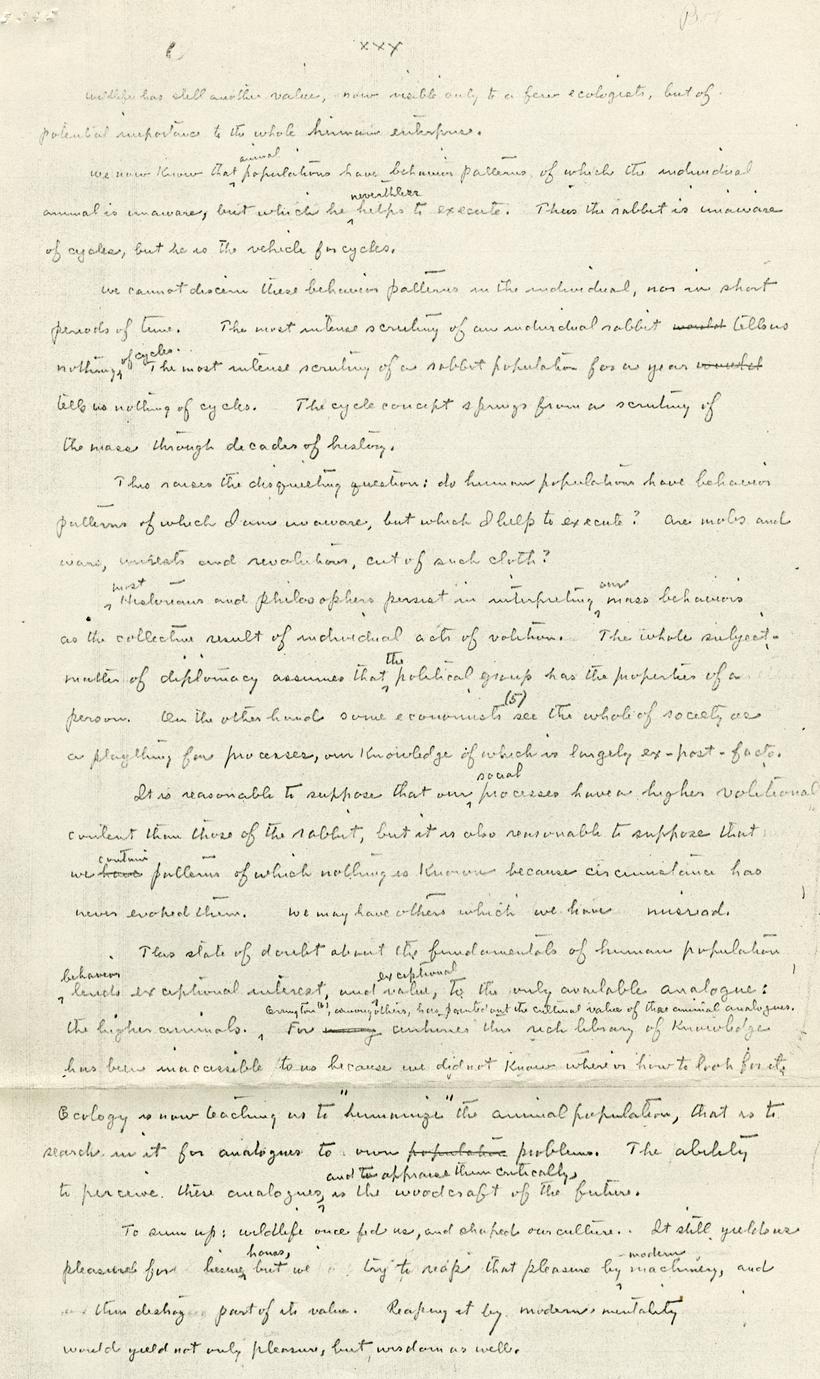 xxx
wildlife has still another value, now visible only to a few ecologists, but of
potential importance to the whole human enterprise.
animal
we now know that populations have behavior patterns of which the individual
nevertheless
animal is unaware, but which he helps to execute. Thus the rabbit is unaware
of cycles, but he is the vehicle for cycles.
we cannot discern these behavior patterns in the individual, nor in short
periods of time. The most intense scrutiny of an individual rabbit would tells us
of cycles.
nothing The most intense scrutiny of a rabbit population for a year would
tells us nothing of cycles. The cycle concept springs from a scrutiny of
the mass through decades of history.
This raises the disquieting question: do human populations have behavior
patterns of which I am unaware, but which I help to execute? Are mobs and
wars, unrests and revolutions, cut of such cloth?
most our
Historians and philosophers persist in interpreting mass behaviors
as the collective result of individual acts of volition. The whole subject-
the
matter of diplomacy assumes that political group has the properties of a
(5)
person. On the other hand some economists see the whole of society as
a plaything for processes, our knowledge of which is largely ex-post-facto.
social
It is reasonable to suppose that our processes have a higher volitional
content than those of the rabbit, but it is also reasonable to suppose that
contain
we have patterns of which nothing is known because circumstance has
never evoked them. We may have others which we have misread.
This state of doubt about the fundamentals of human population
behavior exceptional
lends exceptional interest, and value, to the only available analogue:
Errington (6), among others, has pointed out the cultural value of these animal analogues.
the higher animals. For centuries this rich library of knowledge
has been inaccessible to us because we did not know where or how to look for it.
Ecology is now teaching us to "humanize" the animal population, that is to
search in it for analogues to own population problems. The ability
and to appraise them critically,
to perceive these analogues, is the woodcraft of the future.
To sum up: wildlife once fed us, and shaped our culture. It still yields us
hours, modern
pleasure for leisure but we try to reap that pleasure by machinery, and
thus destroy part of its value. Reaping it by modern mentality
would yield not only pleasure, but wisdom as well.